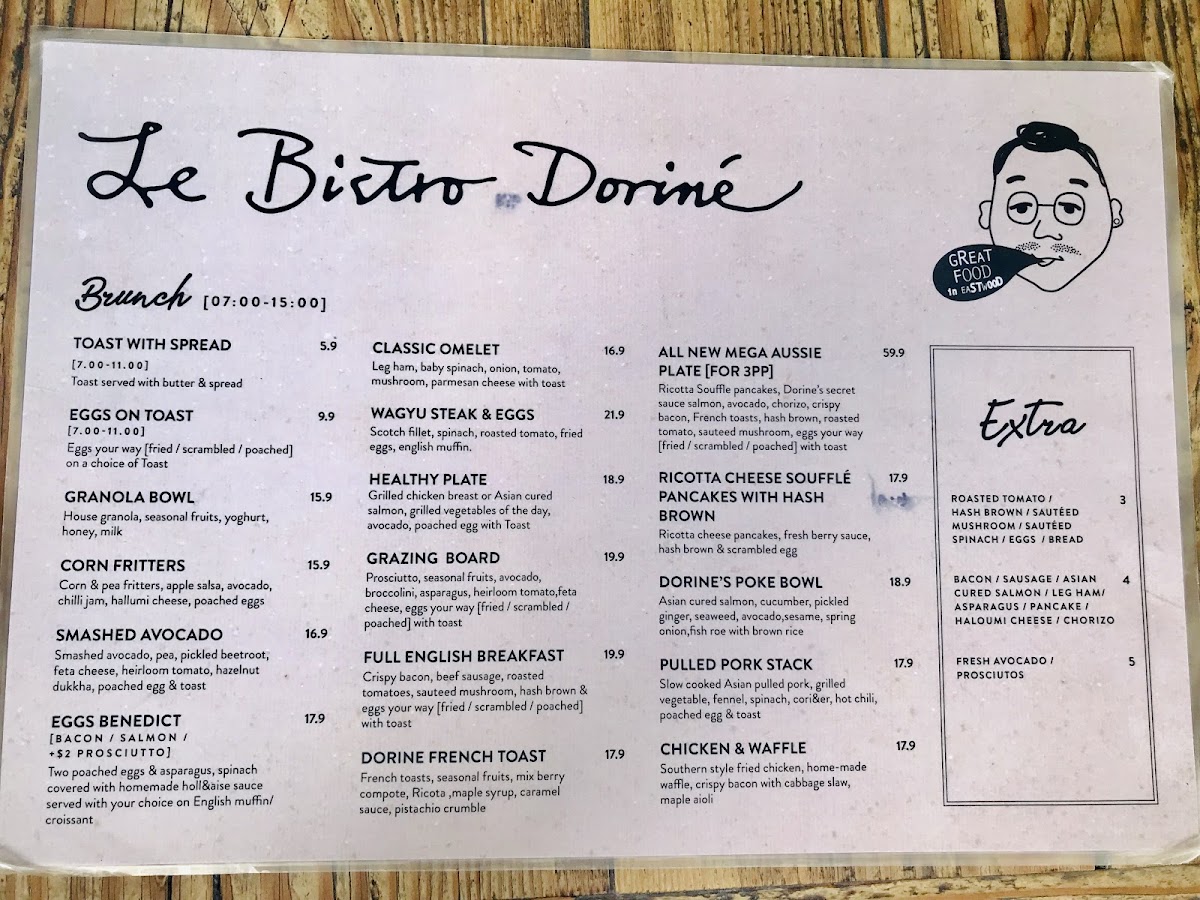 Le Bistro Doriné
GREAT
FOOD
in EASTWOOD
Brunch [07:00-15:00]
TOAST WITH SPREAD 5.9
[7.00-11.00]
Toast served with butter & spread
EGGS ON TOAST 9.9
[7.00-11.00]
Eggs your way [fried / scrambled / poached]
on a choice of Toast
GRANOLA BOWL 15.9
House granola, seasonal fruits, yoghurt,
honey, milk
CORN FRITTERS 15.9
Corn & pea fritters, apple salsa, avocado,
chilli jam, hallumi cheese, poached eggs
SMASHED AVOCADO 16.9
Smashed avocado, pea, pickled beetroot,
feta cheese, heirloom tomato, hazelnut
dukkha, poached egg & toast
EGGS BENEDICT 17.9
[BACON / SALMON /
+$2 PROSCIUTTO]
Two poached eggs & asparagus, spinach
covered with homemade holl&aise sauce
served with your choice on English muffin/
croissant
CLASSIC OMELET 16.9
Leg ham, baby spinach, onion, tomato,
mushroom, parmesan cheese with toast
WAGYU STEAK & EGGS 21.9
Scotch fillet, spinach, roasted tomato, fried
eggs, english muffin.
HEALTHY PLATE 18.9
Grilled chicken breast or Asian cured
salmon, grilled vegetables of the day,
avocado, poached egg with Toast
GRAZING BOARD 19.9
Prosciutto, seasonal fruits, avocado,
broccolini, asparagus, heirloom tomato,feta
cheese, eggs your way [fried / scrambled /
poached] with toast
FULL ENGLISH BREAKFAST 19.9
Crispy bacon, beef sausage, roasted
tomatoes, sauteed mushroom, hash brown &
eggs your way [fried / scrambled / poached]
with toast
DORINE FRENCH TOAST 17.9
French toasts, seasonal fruits, mix berry
compote, Ricota ,maple syrup, caramel
sauce, pistachio crumble
ALL NEW MEGA AUSSIE 59.9
PLATE [FOR 3PP]
Ricotta Souffle pancakes, Dorine's secret
sauce salmon, avocado, chorizo, crispy
bacon, French toasts, hash brown, roasted
tomato, sauteed mushroom, eggs your way
[fried / scrambled / poached] with toast
RICOTTA CHEESE SOUFFLÉ 17.9
PANCAKES WITH HASH
BROWN
Ricotta cheese pancakes, fresh berry sauce,
hash brown & scrambled egg
DORINE'S POKE BOWL 18.9
Asian cured salmon, cucumber, pickled
ginger, seaweed, avocado,sesame, spring
onion,fish roe with brown rice
PULLED PORK STACK 17.9
Slow cooked Asian pulled pork, grilled
vegetable, fennel, spinach, cori&er, hot chili,
poached egg & toast
CHICKEN & WAFFLE 17.9
Southern style fried chicken, home-made
waffle, crispy bacon with cabbage slaw,
maple aioli
Extra
ROASTED TOMATO / 3
HASH BROWN / SAUTÉED
MUSHROOM / SAUTÉED
SPINACH / EGGS / BREAD
BACON / SAUSAGE / ASIAN 4
CURED SALMON / LEG HAM/
ASPARAGUS / PANCAKE /
HALOUMI CHEESE / CHORIZO
FRESH AVOCADO / 5
PROSCIUTOS